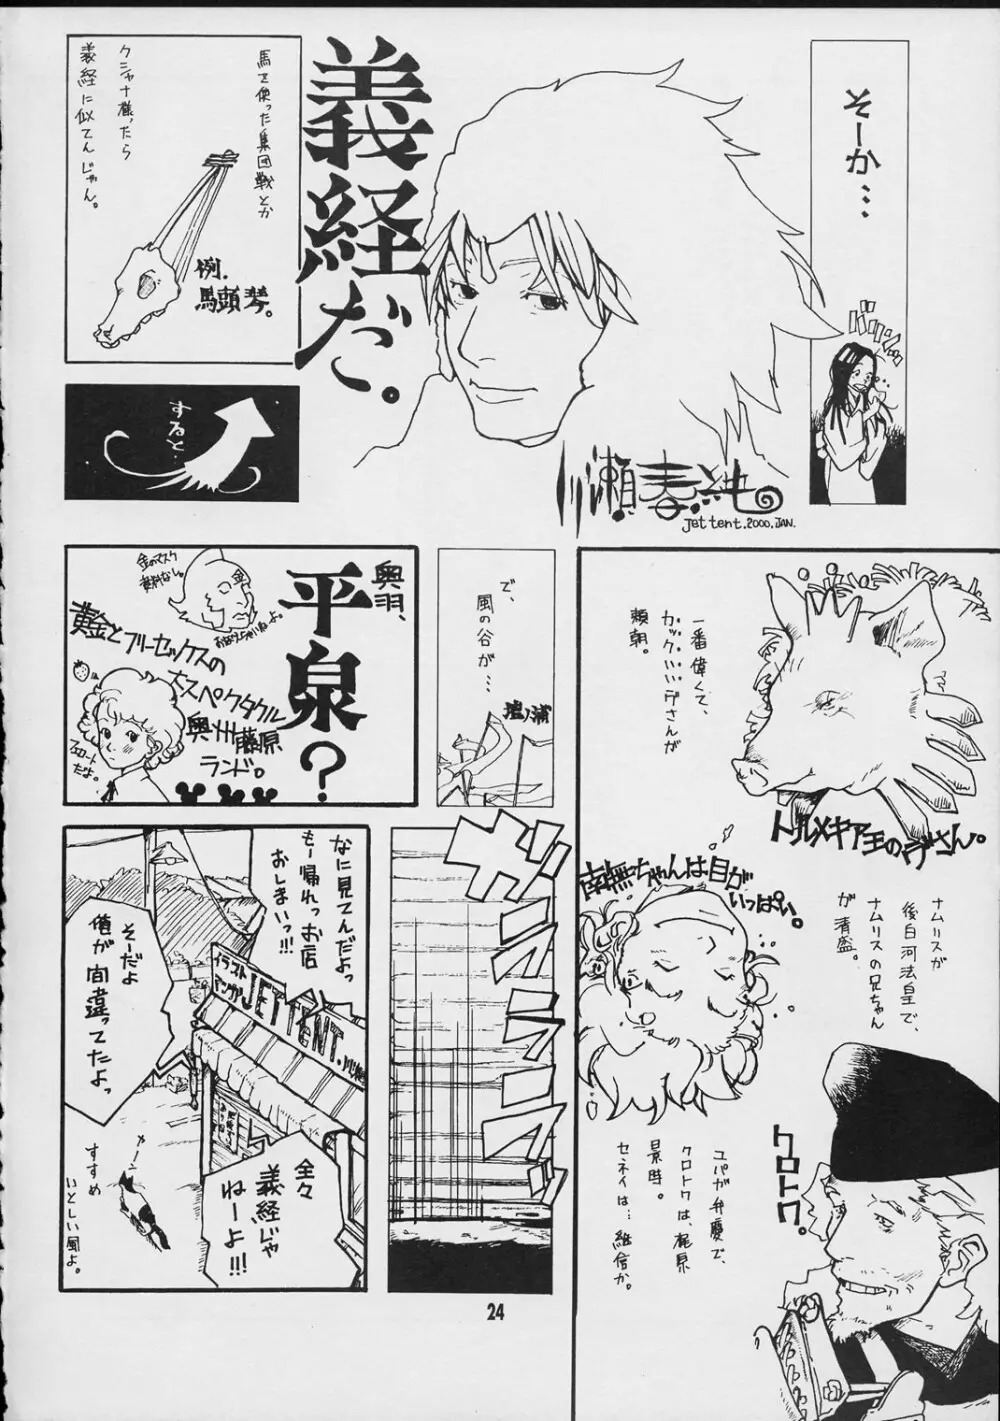 そーか…
バリッ
義経だ。
川瀬春純
jettent.2000.JAN.
馬を使った集団戦とか
クシャナ様ったら
義経に似てんじゃん。
例.
馬頭琴。
すると…
一番偉くて、
カックいいデさんが
頼朝。
トルメキア王のヴさん。
ナムリスが
後白河法皇で、
ナムリスの兄ちゃん
が清盛。
南無ちゃんは目が
いっぱい。
ユパが弁慶で、
クロトワは、梶原
景時。
セネイは…継信か。
クロトワ。
で、
風の谷が…
壇ノ浦
奥羽、
平泉?
金のマスク
黄金とフリーセックスの
大スペクタクル
奥州藤原
ランド。
ガラララッ
なに見てんだよっ
もー帰れっお店
おしまいっ!!!
そーだよ
値が間違ってたよっ
イラスト
マンガ
JETTENT.
全々
義経じゃ
ねーよ!!!
すすめ
いとしい風よ。
24